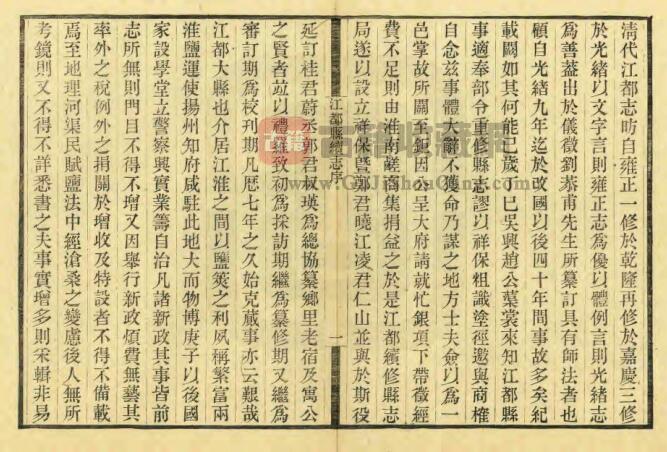 清代江都志昉自雍正一修於乾隆再修於嘉慶三修
於光緒以文字言則雍正志為優以體例言則光緒志
為善蓋出於儀徵劉恭甫先生所纂訂具有師法者也
顧自光緒九年迄於改國以後四十年間事故多矣紀
載闕如其何能已歲丁巳吳興趙公蓴裳來知江都縣
事適奉部令重修縣志謬以祥保粗識塗徑邀與商榷
自念茲事體大辭不獲命乃謀之地方士夫僉以為一
邑掌故所關至鉅因公呈大府請就忙銀項下帶徵經
費不足則由淮南鹺商集捐益之於是江都續修縣志
局遂以設立祥保暨鄭君曉江凌君仁山並與於斯役
江都縣續志序
一
延訂桂君蔚丞郭君叔瑛為總協纂鄉里老宿及寓公
之賢者竝以禮羅致初為採訪期繼為纂修期又繼為
審訂期為校刊期凡厯七年之久始克蕆事亦云艱哉
江都大縣也介居江淮之間以鹽筴之利夙稱繁富兩
淮鹽運使揚州知府咸駐此地大而物博庚子以後國
家設學堂立警察興實業籌自治凡諸新政其事皆前
志所無則門目不得不增又因舉行新政煩費無藝其
率外之稅例外之捐關於增收及特設者不得不備載
焉至地理河渠民賦鹽法中經滄桑之變慮後人無所
考鏡則又不得不詳悉書之夫事實增多則采輯非易
古籍收藏网
www.GuJiShouCang.Com